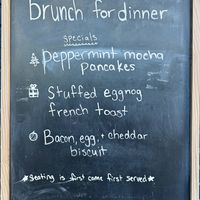 brunch for dinner
specials
peppermint mocha
pancakes
Stuffed eggnog
french toast
Bacon, egg, + cheddar
biscuit
*Seating is first come first served*